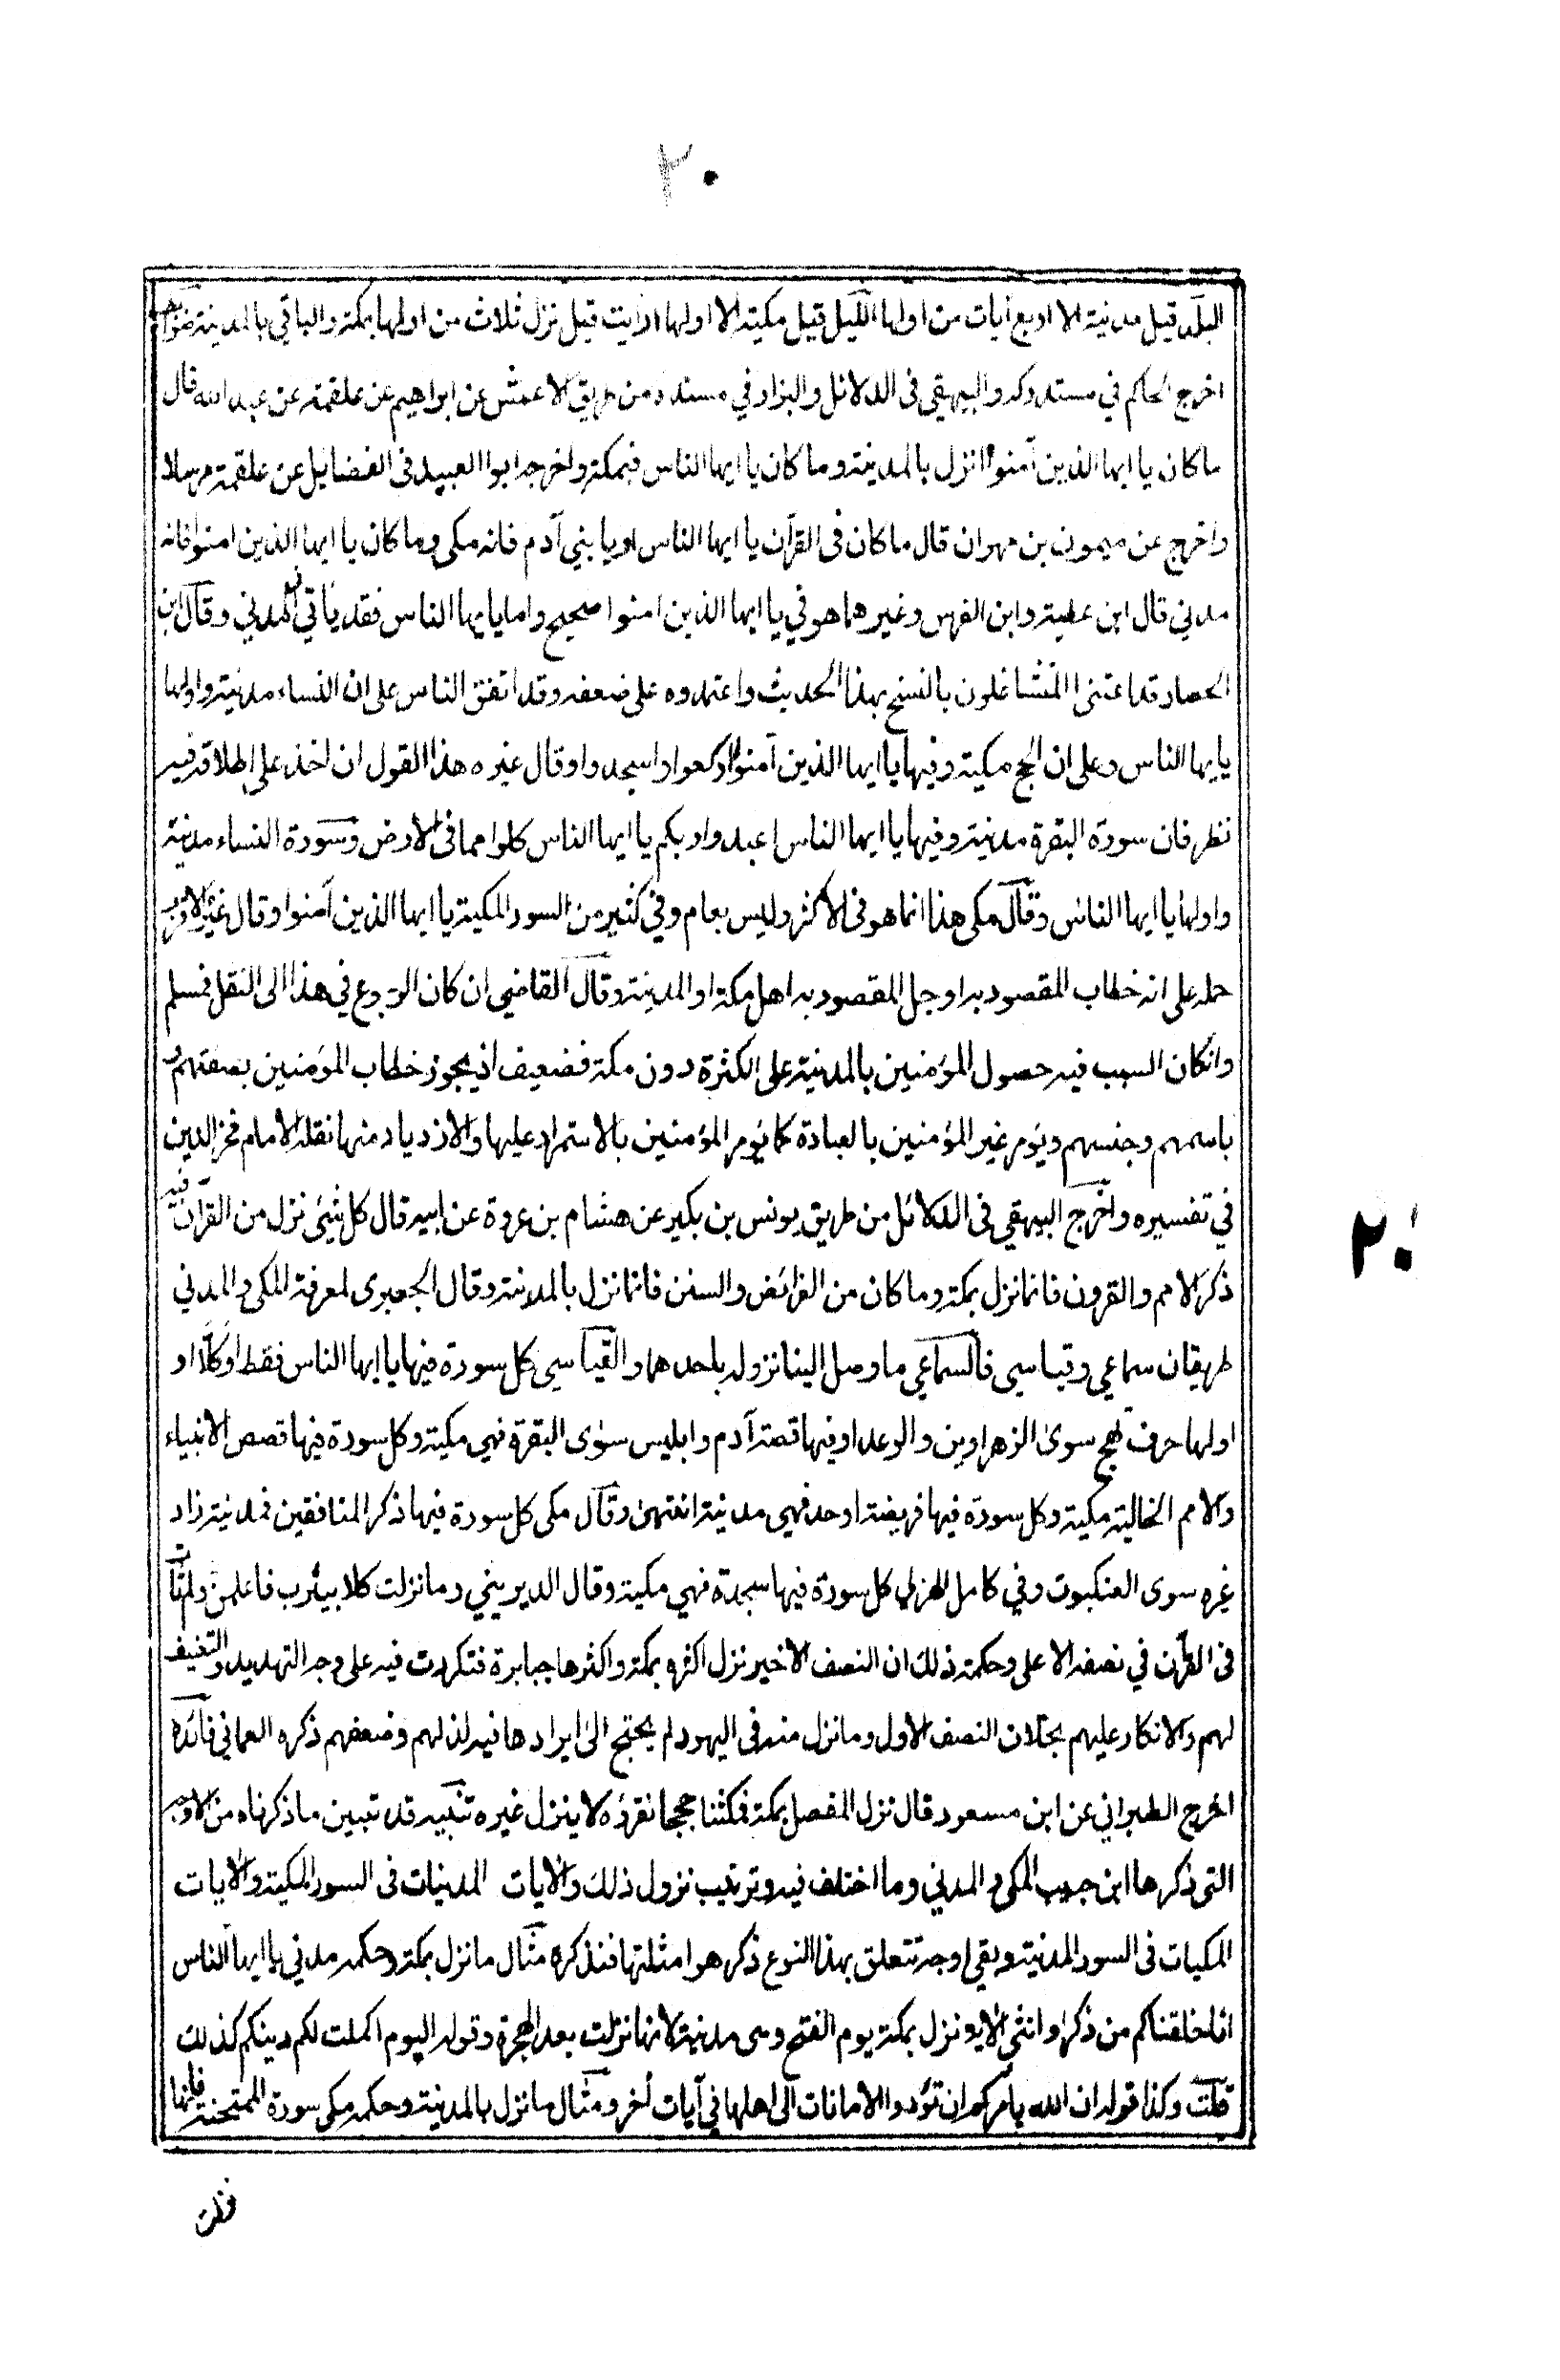 ٢٠
البلد قيل مدنية الا اربع آيات من اولها الليل قيل مكية الا اولها ارايت قيل نزل ثلاث من اولها بمكة والباقي بالمدينة ضوابط
اخرج الحاكم في مستدركه والبيهقي في الدلائل والبزار في مسنده من طريق الاعمش عن ابراهيم عن علقمة عن عبد الله قال
ما كان يا ايها الذين آمنوا انزل بالمدينة وما كان يا ايها الناس فبمكة واخرجه ابوا العبيد في الفضايل عن علقمة مرسلا
واخرج عن ميمون بن مهران قال ما كان في القرآن يا ايها الناس او يا بني آدم فانه مكى وما كان يا ايها الذين امنوا فانه
مدني قال ابن عطية وابن الفرس وغيرهما هو في يا ايها الذين امنوا صحيح واما يا ايها الناس فقد ياتي في المدني وقال ابن
الحصار قد اعتنى المتشاغلون بالنسخ بهذا الحديث واعتمدوه على ضعفه وقد اتفق الناس على ان النساء مدنية واولها
يايها الناس وعلى ان الحج مكية وفيها يا ايها الذين آمنوا اركعوا واسجدوا وقال غيره هذا القول ان اخذ على اطلاقه فيه
نظر فان سورة البقرة مدنية وفيها يا ايها الناس اعبدوا ربكم يا ايها الناس كلوا مما فى الارض وسورة النساء مدنية
واولها يا ايها الناس وقال مكى هذا انما هو فى الاكثر وليس بعام وفي كثير من السور المكية يا ايها الذين آمنوا وقال غيره الاقرب
حمله على انه خطاب المقصود به او جل المقصود به اهل مكة او المدينة وقال القاضي ان كان الرجوع في هذا الى النقل فمسلم
وانكان السبب فيه حصول المؤمنين بالمدينة على الكثرة دون مكة فضعيف اذ يجوز خطاب المؤمنين بصفتهم و
باسمهم وجنسهم ويؤمر غير المؤمنين بالعبادة كما يؤمر المؤمنين بالاستمرار عليها والازدياد منها نقله الامام فخر الدين
في تفسيره واخرج البيهقي فى الدلائل من طريق يونس بن بكير عن هشام بن عروة عن ابيه قال كل شئ نزل من القرآن فيه
ذكر الامم والقرون فانما نزل بمكة وما كان من الفرائض والسنن فانما نزل بالمدينة وقال الجعبرى لمعرفة المكى والمدني
طريقان سماعي وقياسى فالسماعي ما وصل الينا نزوله باحدهما والقياسى كل سورة فيها يا ايها الناس فقط او كلا او
اولها حرف تهج سوى الزهراوين والرعد او فيها قصة آدم وابليس سوى البقرة فهي مكية وكل سورة فيها قصص الانبياء
والامم الخالية مكية وكل سورة فيها فريضة او حد فهي مدنية انتهى وقال مكى كل سورة فيها ذكر المنافقين فمدنية زاد
غيره سوى العنكبوت وفي كامل الهزلي كل سورة فيها سجدة فهي مكية وقال الديريني وما نزلت كلا بيثرب فاعلمن ولم تات
فى القرآن في نصفه الاعلى وحكمة ذلك ان النصف الاخير نزل اكثره بمكة واكثرها جبابرة فتكررت فيه على وجه التهديد والتعنيف
لهم والانكار عليهم بخلاف النصف الاول وما نزل منه فى اليهود لم يحتج الى ايرادها فيه لذلهم وضعفهم ذكره العماني فائدة
اخرج الطبراني عن ابن مسعود قال نزل المفصل بمكة فمكثنا حججا نقرؤه لا ينزل غيره تنبيه قد تبين ما ذكرناه من الاوجه
التى ذكرها ابن حبيب المكى والمدني وما اختلف فيه وترتيب نزول ذلك والايات المدنيات فى السور المكية والايات
المكيات فى السور المدنية وبقي اوجه تتعلق بهذا النوع ذكر هو امثلتها فنذكره مثال ما نزل بمكة وحكمه مدني يا ايها الناس
انا خلقناكم من ذكر وانثى الاية نزل بمكة يوم الفتح وهى مدنية لانها نزلت بعد الهجرة وقوله اليوم اكملت لكم دينكم كذلك
قلت وكذا قوله ان الله يأمركم ان تؤدوا الامانات الى اهلها في آيات أخر ومثال ما نزل بالمدينة وحكمه مكى سورة الممتحنة فانها
نزلت
٢٠